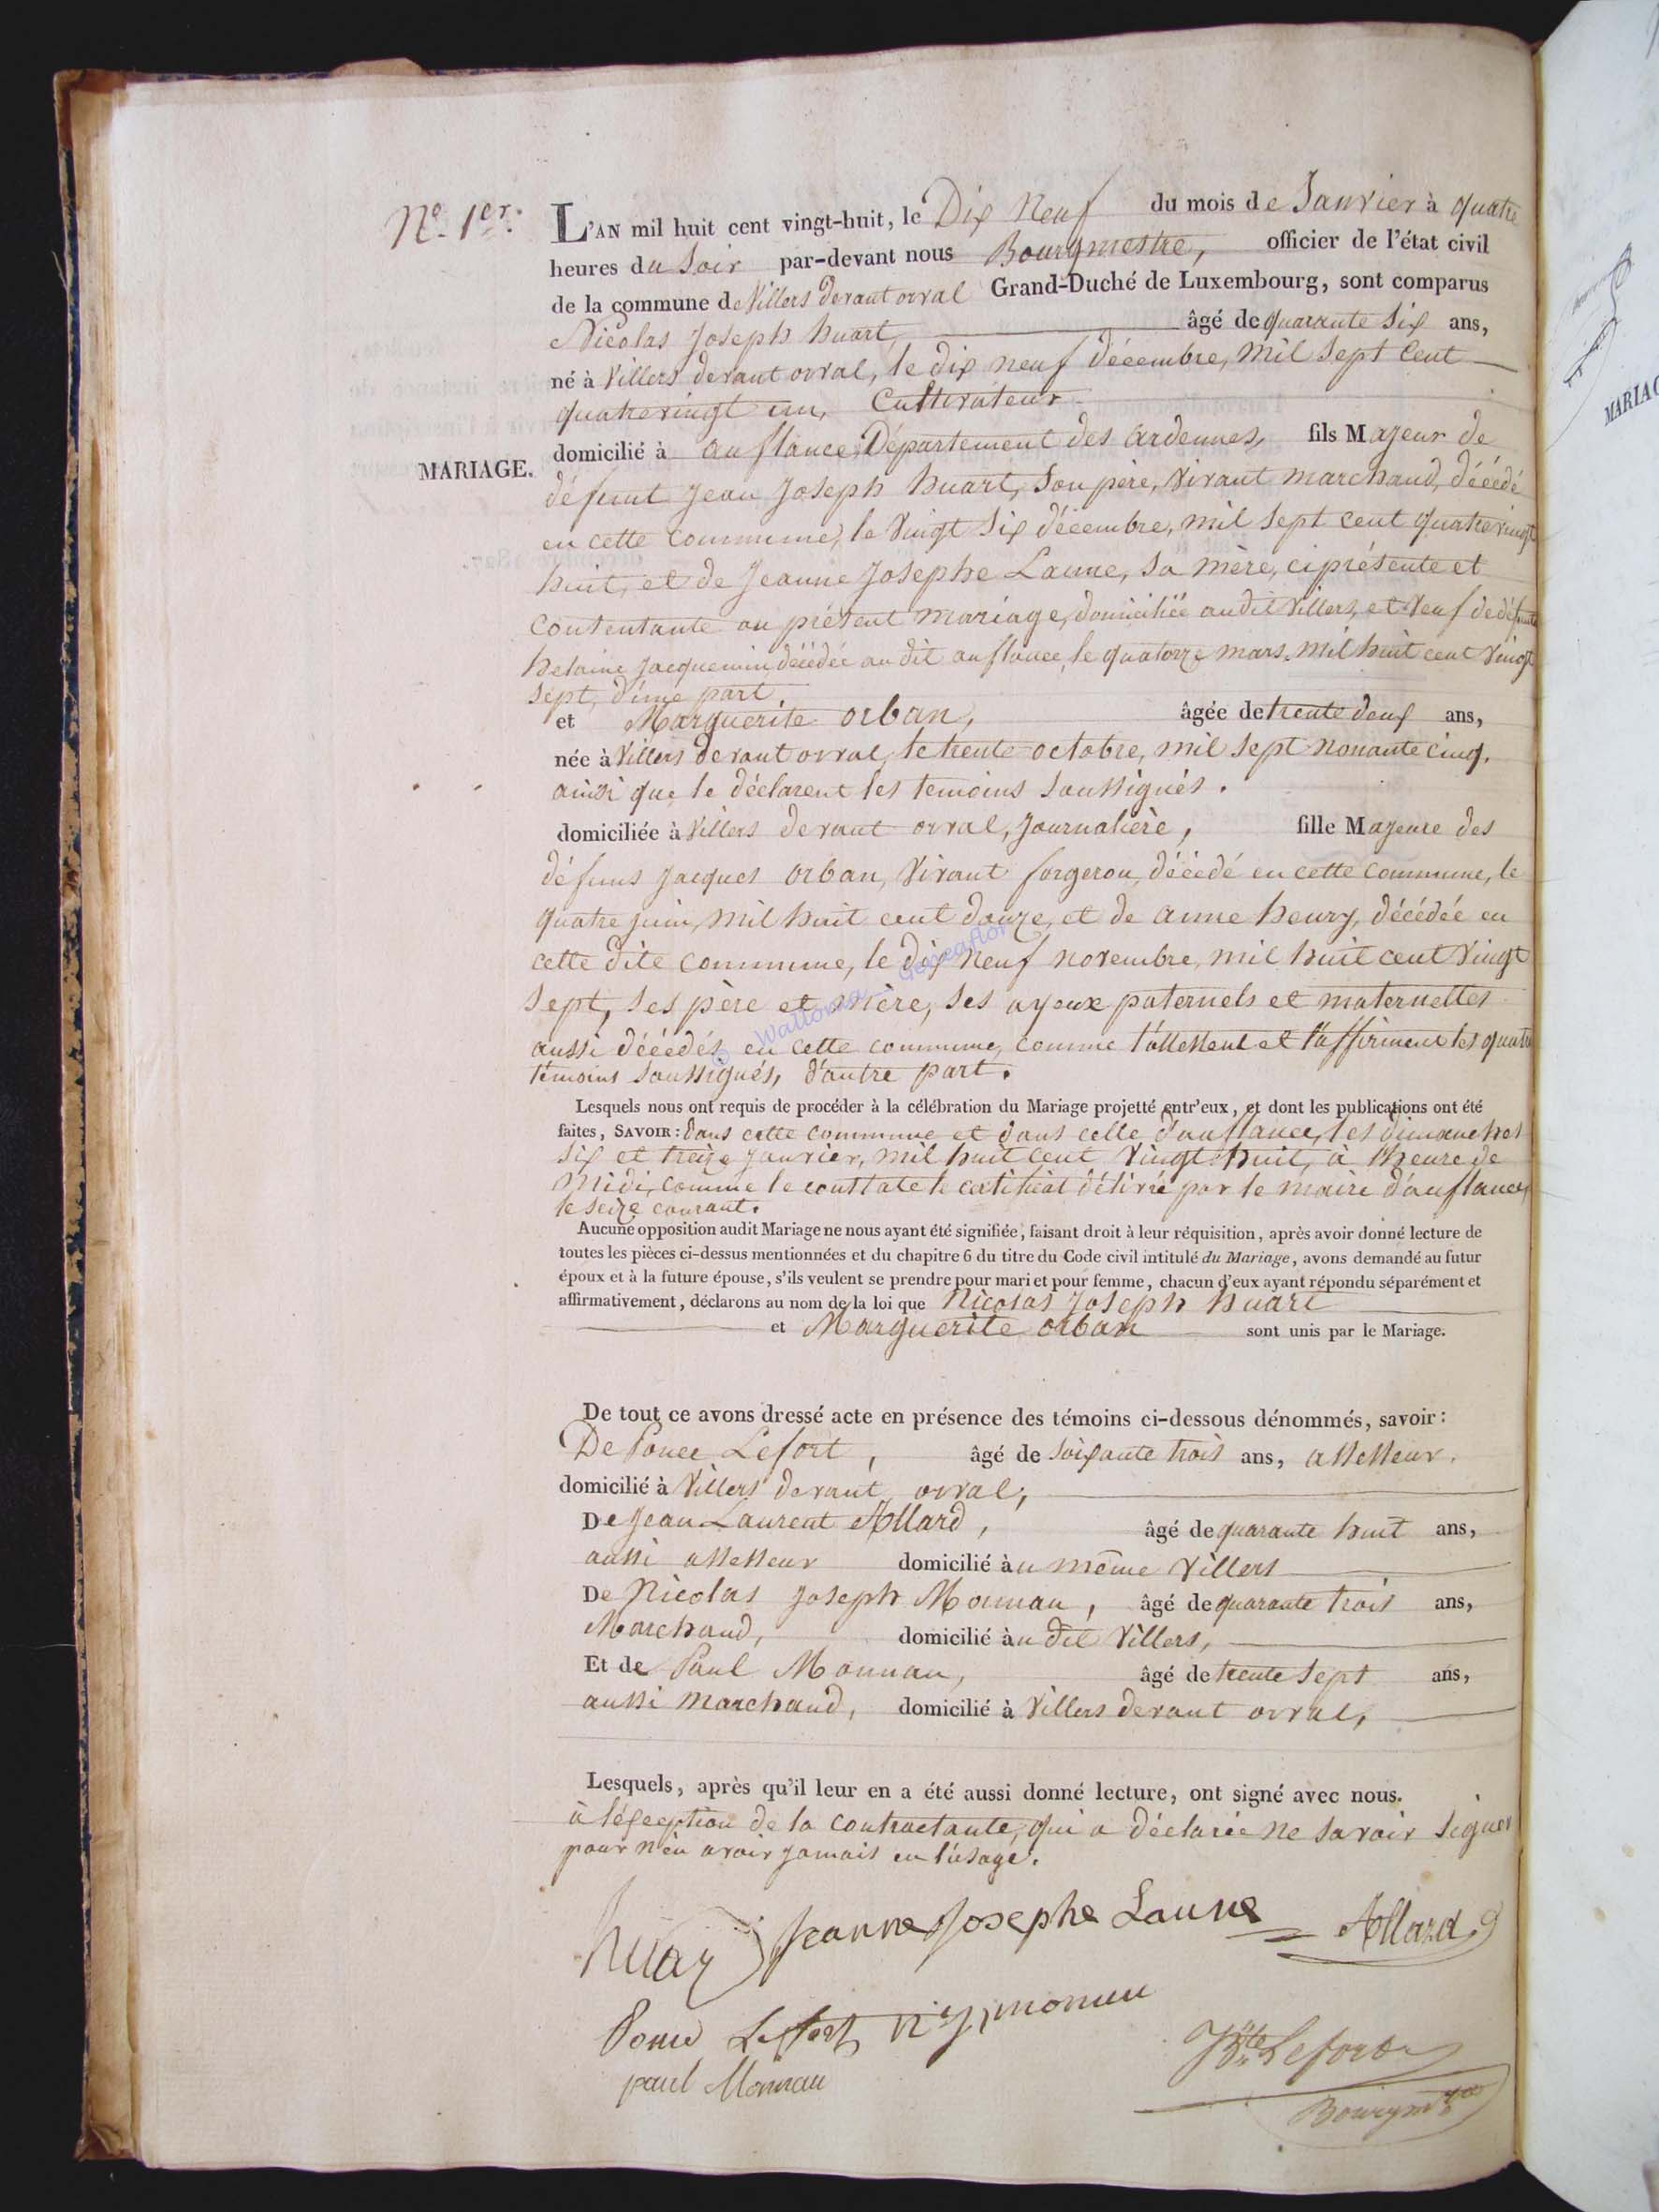 N.o 1er.
L'AN mil huit cent vingt-huit, le Dix Neuf du mois de Janvier à quatre
heures du Soir par-devant nous Bourgmestre, officier de l'état civil
de la commune de Villers devant orval Grand-Duché de Luxembourg, sont comparus
Nicolas Joseph huart, âgé de quarante Six ans,
né à Villers devant orval, le dix neuf décembre, mil Sept Cent
quatrevingt un, Cultivateur
MARIAGE.
domicilié à auflance Département des ardennes, fils Majeur de
défunt Jean Joseph huart, Son père, vivant marchand, décédé
en cette Commune, le Vingt Six décembre, mil Sept cent quatrevingt
huit, et de Jeanne Josephe Laune, Sa mère, ci présente et
Consentante au présent mariage, domiciliée audit Villers, et Veuf de défunte
helaine Jacquemin décédée au dit auflance, le quatorze mars, mil huit cent Vingt
Sept, d'une part
et Marguerite orban, âgée de trente deux ans,
née à Villers devant orval, le trente octobre, mil Sept nonante cinq,
ainsi que le déclarent les temoins Soussignés.
domiciliée à Villers devant orval, Journalière, fille Majeure des
défuns Jacques orban, Vivant forgeron, décédé en cette Commune, le
quatre juin, mil huit cent douze, et de anne henry, décédée en
cette dite Commune, le dix neuf novembre, mil huit cent Vingt
Sept, Ses père et mère, Ses ayeux paternels et maternelles
aussi décédés en cette commune, comme l'attestent et l'affirment les quatre
témoins Soussignés, d'autre part.
Lesquels nous ont requis de procéder à la célébration du Mariage projetté entr'eux, et dont les publications ont été
faites, SAVOIR: dans cette commune et dans celle d'auflance, les dimanches
Six et treize Janvier, mil huit Cent Vingt huit, à l'heure de
Midi, Comme le constate le certificat délivré par le maire d'auflance,
le Seize courant.
Aucune opposition audit Mariage ne nous ayant été signifiée, faisant droit à leur réquisition, après avoir donné lecture de
toutes les pièces ci-dessus mentionnées et du chapitre 6 du titre du Code civil intitulé du Mariage, avons demandé au futur
époux et à la future épouse, s'ils veulent se prendre pour mari et pour femme, chacun d'eux ayant répondu séparément et
affirmativement, déclarons au nom de la loi que Nicolas Joseph huart
et Marguerite orban sont unis par le Mariage.
De tout ce avons dressé acte en présence des témoins ci-dessous dénommés, savoir:
De Ponce Lefort, âgé de Soixante trois ans, assesseur,
domicilié à Villers devant orval,
De Jean Laurent Allard, âgé de quarante huit ans,
aussi assesseur domicilié au même Villers
De Nicolas Joseph Monnau, âgé de quarante trois ans,
Marchand, domicilié au dit Villers,
Et de Paul Monnau, âgé de trente Sept ans,
aussi Marchand, domicilié à Villers devant orval,
Lesquels, après qu'il leur en a été aussi donné lecture, ont signé avec nous.
à léxception de la Contractante, qui a déclarée ne Savoir Signer
pour n'en avoir Jamais eu l'usage.
Jeanne Josephe Laune Allard
Ponce Lefort
paul Monnau
Lefort
Bourgm
MARIAG